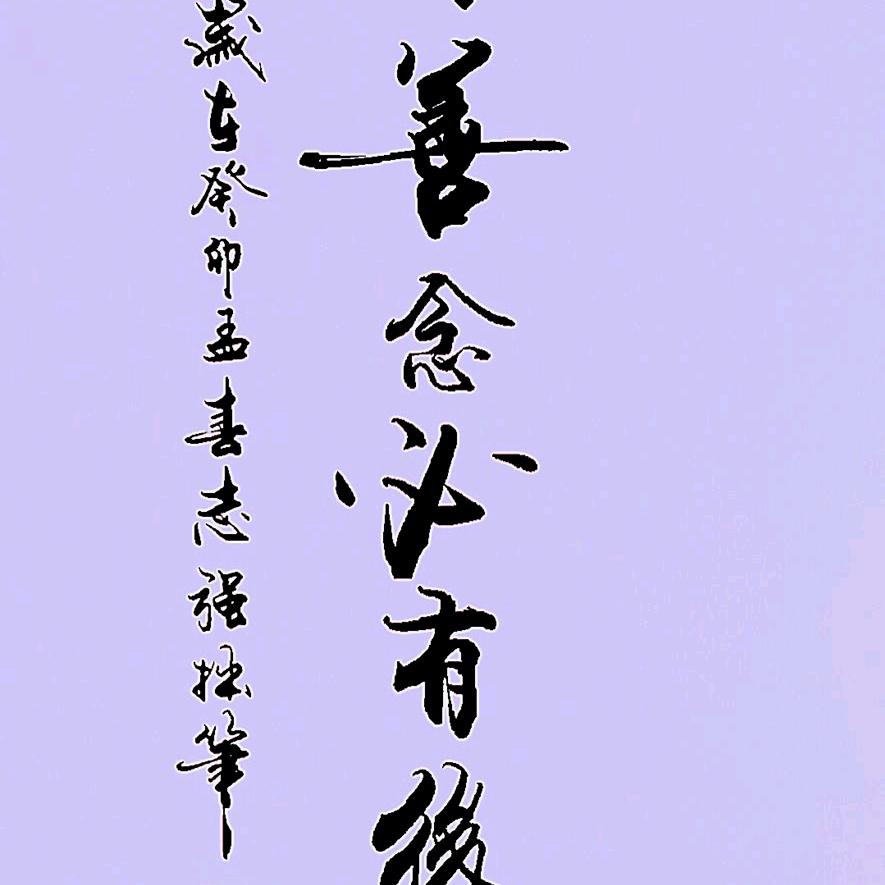 善念必有後
歲在癸卯孟春志强拙筆